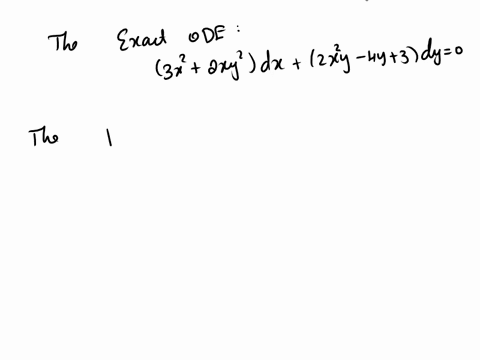 The Exact ODE:
(3x² + 2xy²) dx + (2x²y - 4y + 3) dy = 0
The